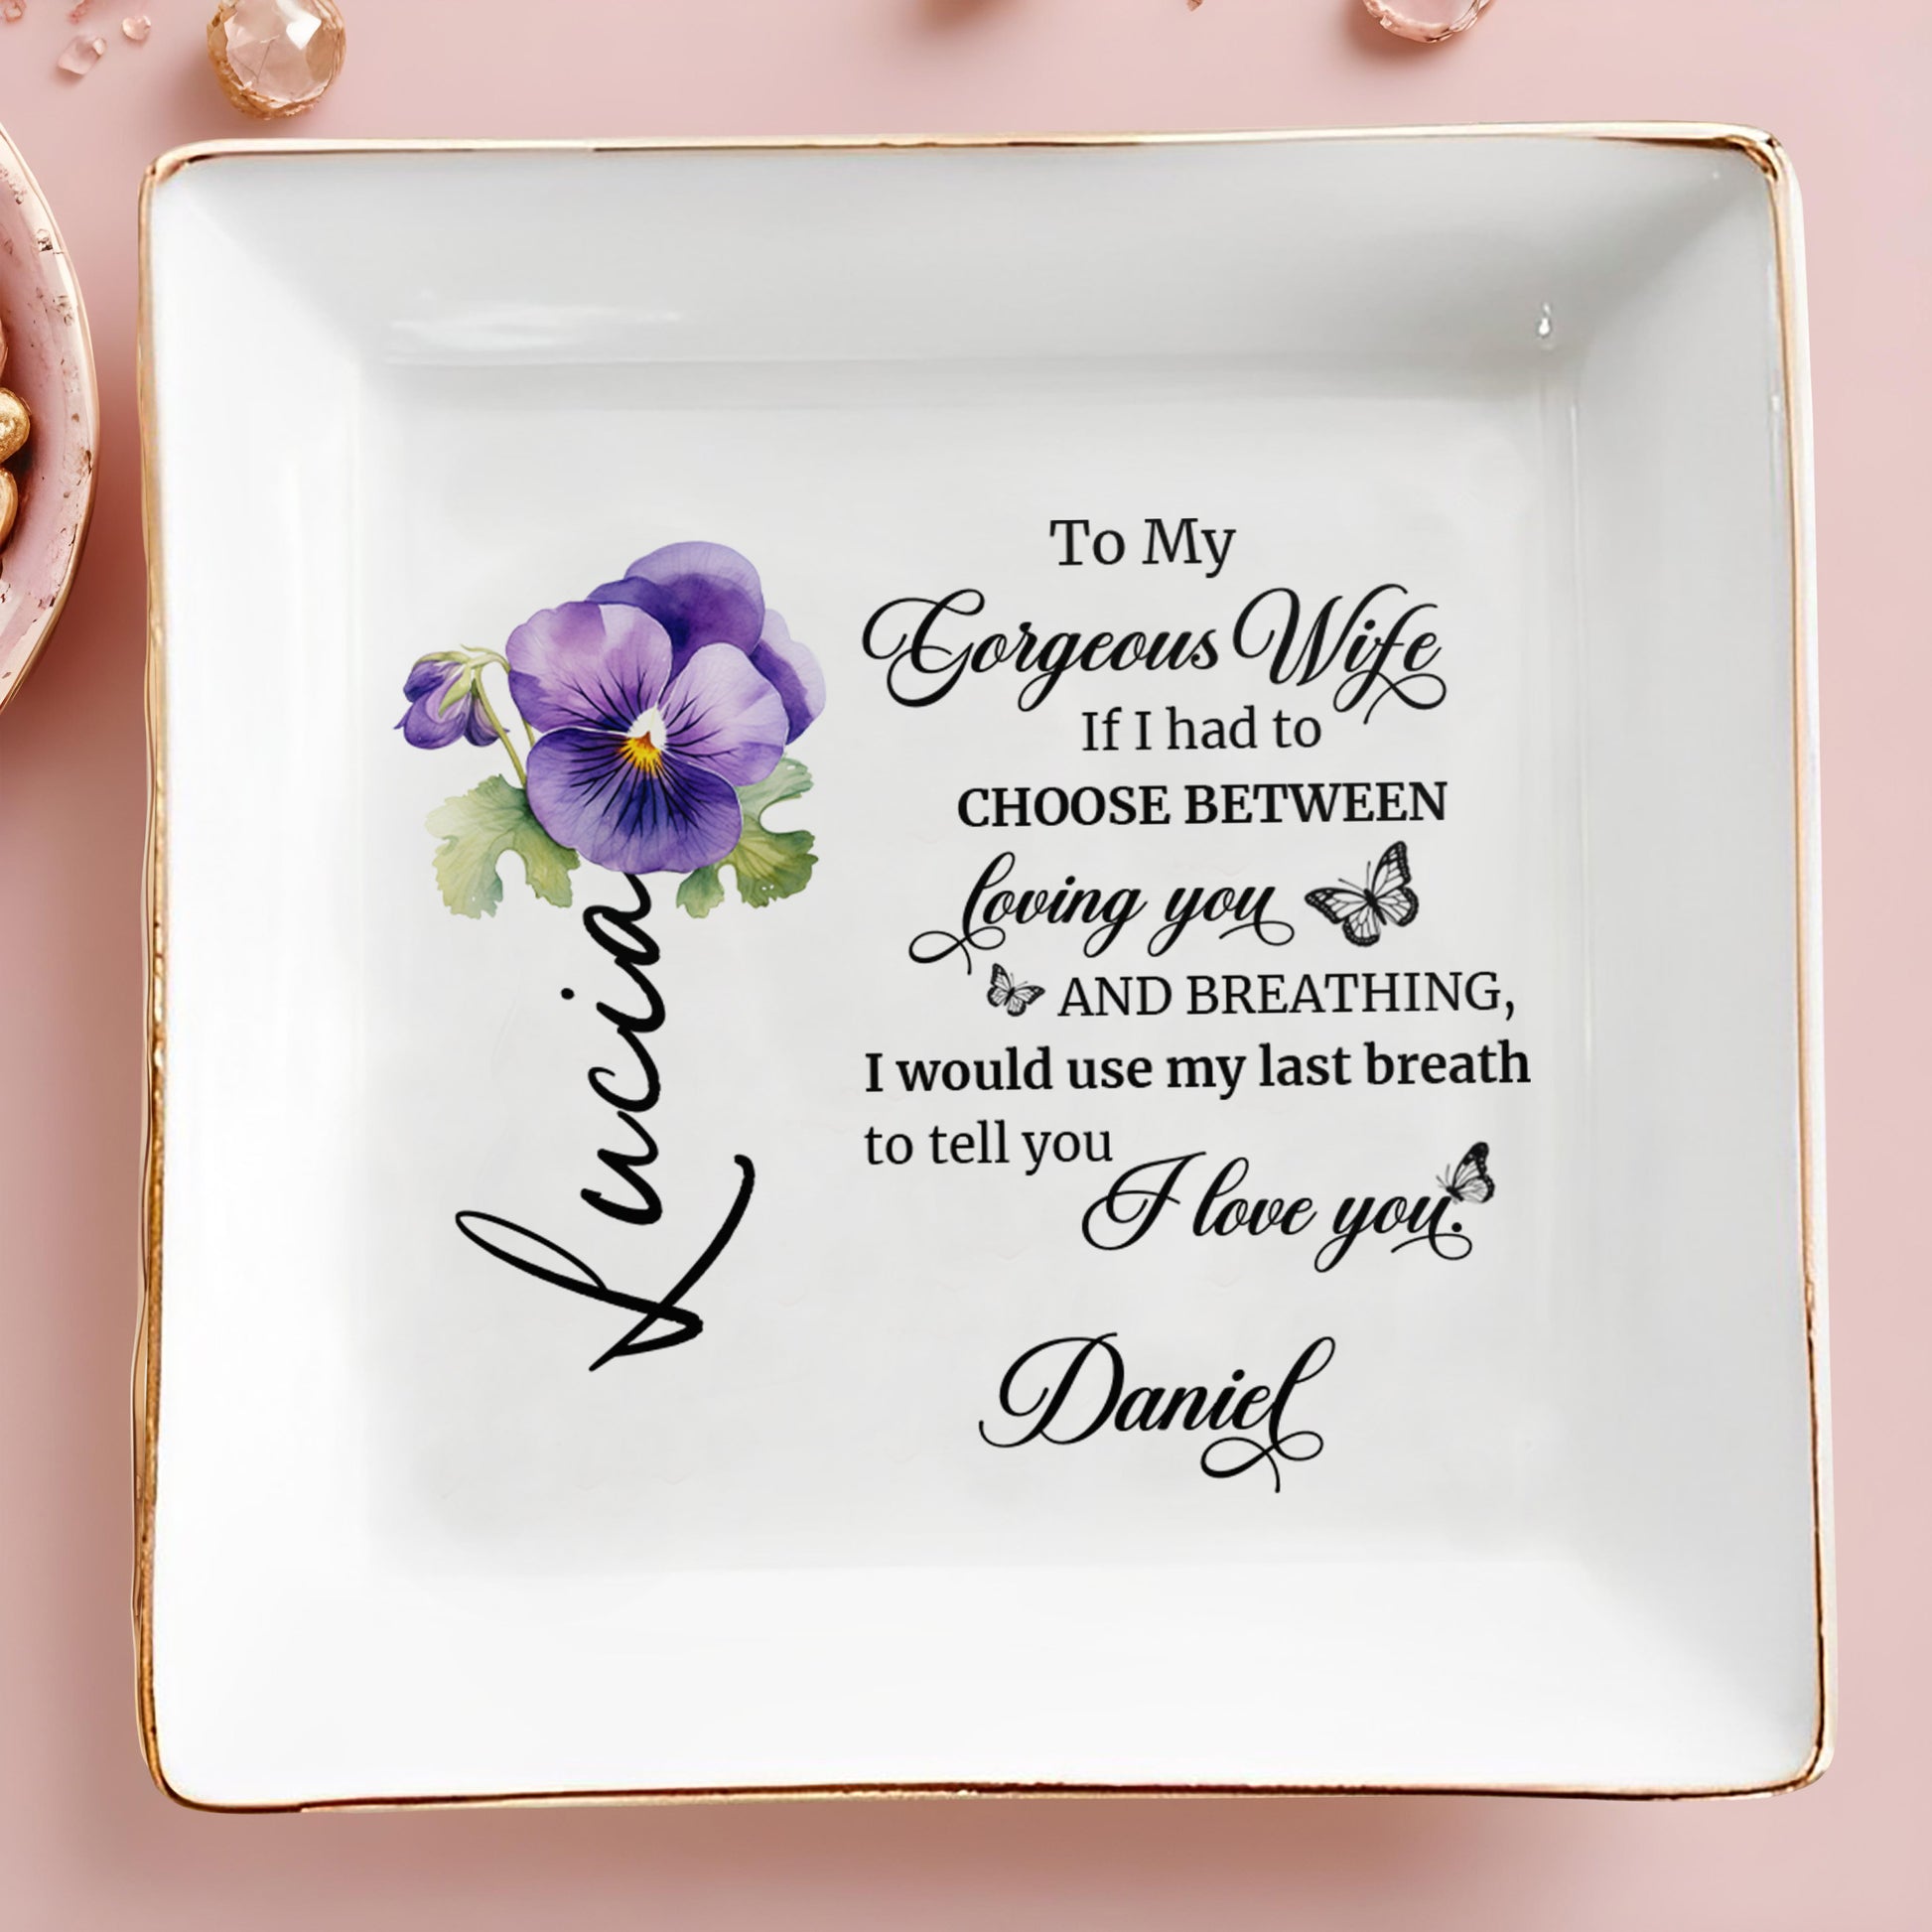 Lucia
To My
Gorgeous Wife
If I had to
CHOOSE BETWEEN
loving you
AND BREATHING,
I would use my last breath
to tell you
I love you.
Daniel